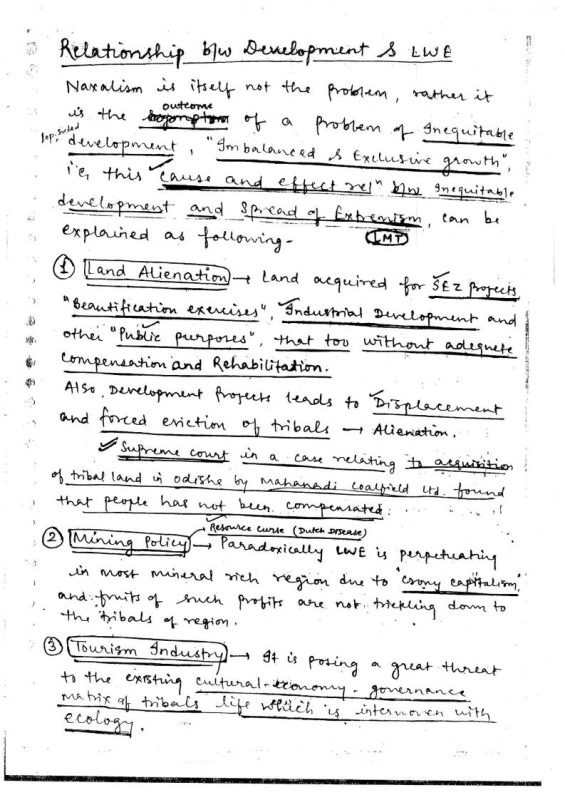 Relationship b/w Development & LWE
Naxalism is itself not the problem, rather it
outcome
is the symptom of a problem of Inequitable
lop-sided
development, "Imbalanced & Exclusive growth",
i.e, this cause and effect relⁿ b/w Inequitable
development and Spread of Extremism, can be
explained as following- IMT
① Land Alienation → Land acquired for SEZ projects,
"Beautification exercises", Industrial Development and
other "Public purposes", that too without adequate
compensation and Rehabilitation.
Also, Development Projects leads to Displacement
and forced eviction of tribals → Alienation.
Supreme court in a case relating to acquisition
of tribal land in odisha by mahanadi coalfield ltd. found
that people has not been compensated.
Resource Curse (Dutch Disease)
② Mining Policy → Paradoxically LWE is perpetuating
in most mineral rich region due to "crony capitalism"
and fruits of such profits are not trickling down to
the tribals of region.
③ Tourism Industry → It is posing a great threat
to the existing cultural-economy-governance
matrix of tribals life which is interwoven with
ecology.